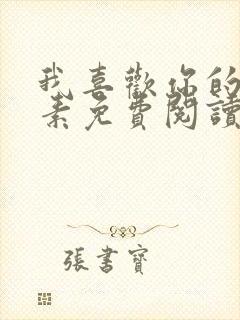 我喜歡你的
素免費閱讀
張書寶